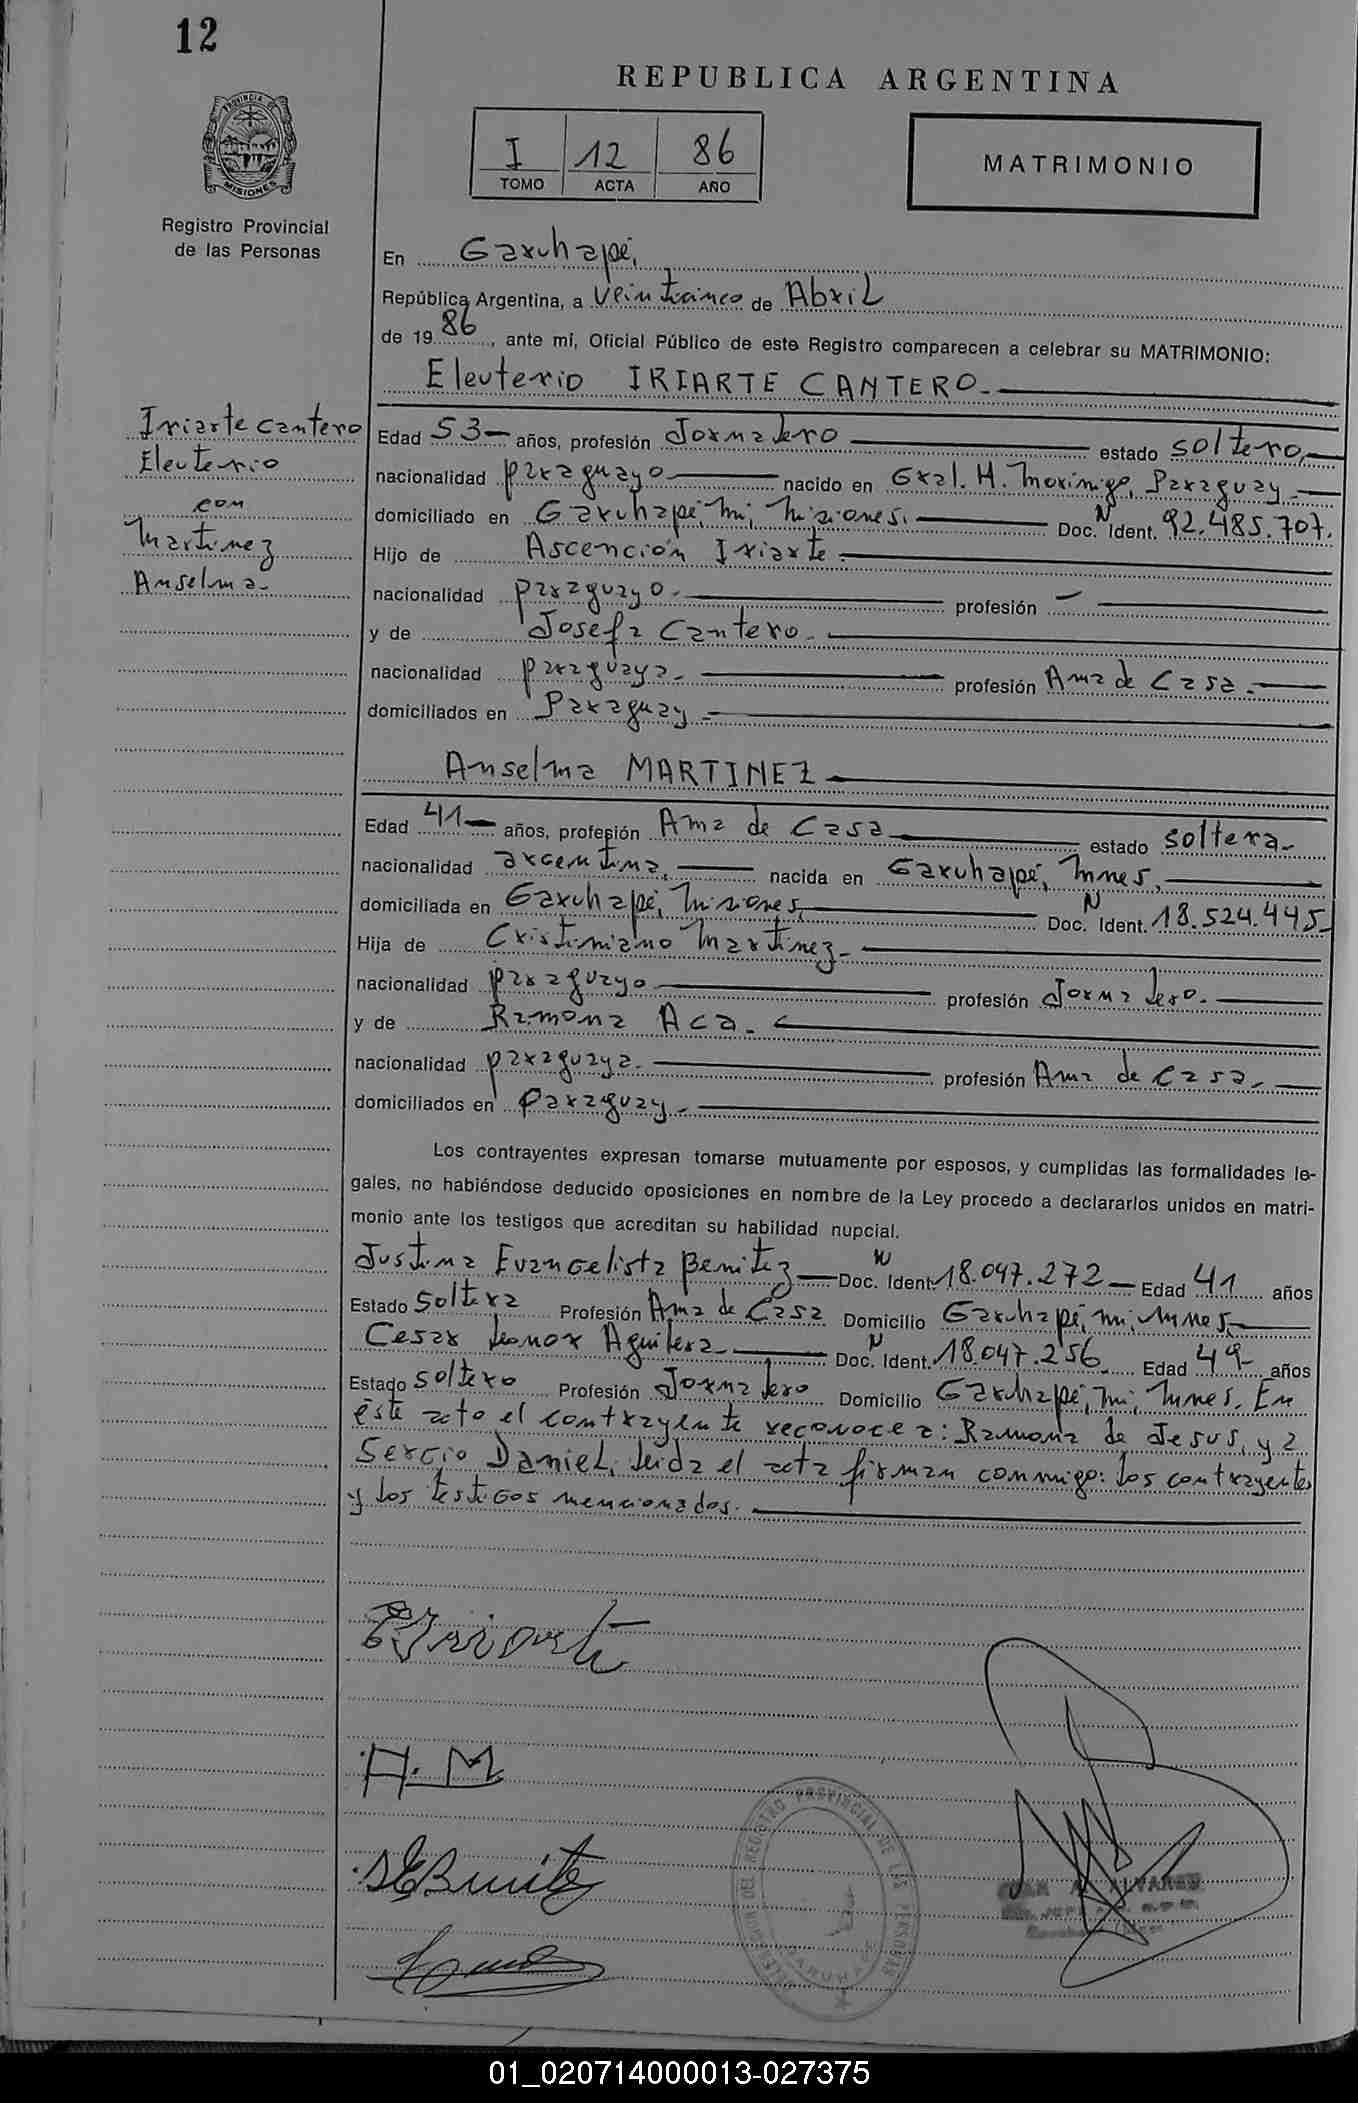 12
REPUBLICA ARGENTINA
PROVINCIA DE
MISIONES
Registro Provincial
de las Personas
I 12 86
TOMO ACTA AÑO
MATRIMONIO
En Garuhapé,
República Argentina, a Veinticinco de Abril
de 1986, ante mí, Oficial Público de este Registro comparecen a celebrar su MATRIMONIO:
Eleuterio IRIARTE CANTERO.
Iriarte Cantero
Eleuterio
con
Martinez
Anselma.
Edad 53 años, profesión Jornalero estado soltero,
nacionalidad paraguayo nacido en Gral. H. Morinigo, Paraguay
domiciliado en Garuhapé, Mi, Misiones. Doc. N Ident. 92.485.707.
Hijo de Ascención Iriarte
nacionalidad paraguayo. profesión -
y de Josefa Cantero.
nacionalidad paraguaya. profesión Ama de Casa.
domiciliados en Paraguay
Anselma MARTINEZ
Edad 41 años, profesión Ama de Casa estado soltera
nacionalidad argentina, nacida en Garuhapé, Mnes,
domiciliada en Garuhapé, Misiones, Doc. N Ident. 18.524.445
Hija de Cristiniano Martinez
nacionalidad paraguayo profesión Jornalero.
y de Ramona Aca.
nacionalidad paraguaya. profesión Ama de Casa.
domiciliados en Paraguay
Los contrayentes expresan tomarse mutuamente por esposos, y cumplidas las formalidades le-
gales, no habiéndose deducido oposiciones en nombre de la Ley procedo a declararlos unidos en matri-
monio ante los testigos que acreditan su habilidad nupcial.
Justina Evangelista Benitez Doc. N Ident. 18.047.272 Edad 41 años
Estado Soltera Profesión Ama de Casa Domicilio Garuhapé, mi, Mnes,
Cesar Leonor Aguilera Doc. N Ident. 18.047.256 Edad 49 años
Estado soltero Profesión Jornalero Domicilio Garuhapé, Mi, Mnes. En
éste acto el contrayente reconoce a: Ramona de Jesus, y a
Sergio Daniel, leida el acta firman conmigo: los contrayentes
y los testigos mencionados.
E Iriarte
A. M
J E Benitez
DEL REGISTRO PROVINCIAL DE LAS PERSONAS
GARUHAPE
ALVAREZ
01_020714000013-027375